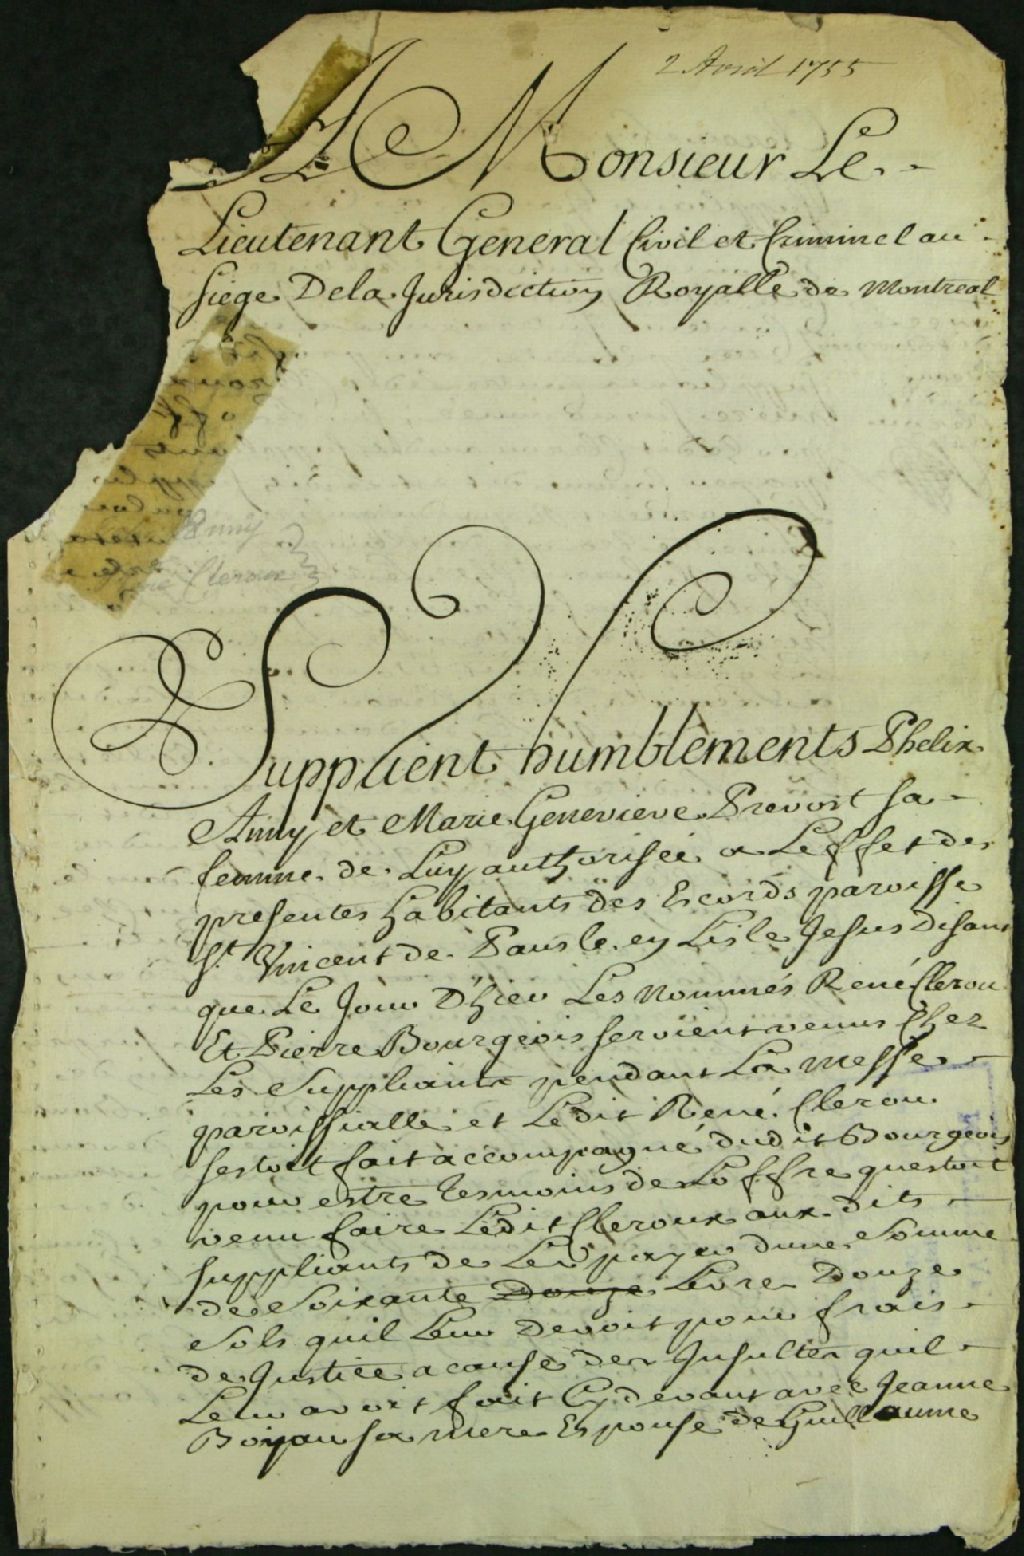 2 Avril 1755
A Monsieur Le
Lieutenant General Civil et Criminel au
siege Dela Jurisdiction Royalle de Montreal
Supplient humblements Phelix
Aimy et Marie Genevieve Prevost sa
femme de Luy authorisée a Leffet des
presentes habitants des Ecords paroisse
St. Vincent de Pausle en Lisle Jesus Disant
que Le Jour D'hier Les Nommés René Clerou
Et Pierre Bourgeois seroient venus Chez
Les Suppliants pendant La Messe
paroissialle et Ledit René Clerou
sestoit fait accompagné dudit Bourgeois
pour estre tesmoins de Loffre questoit
venu faire Ledit Cleroux aux dits
suppliants de Les payer dune Somme
de Soixante Douze Livre Douze
Sols quil Leur Devoit pour frais
de Justice a cause des Insultes quil
Leur avoit fait Cy devant avec Jeanne
Boyau sa mere Espouse de Guillaume